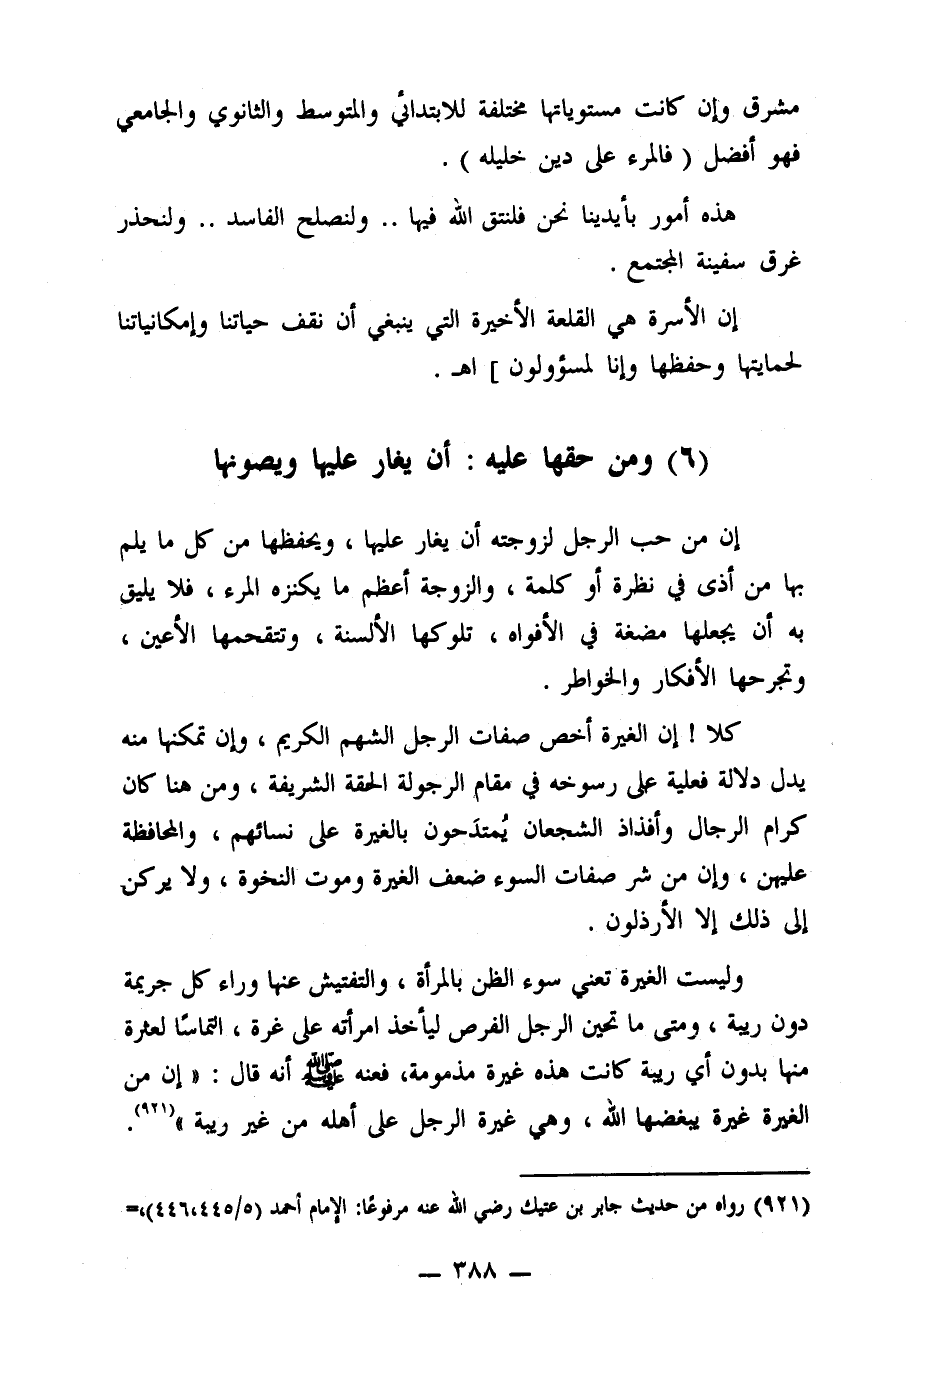 مشرق وإن كانت مستوياتها مختلفة للابتدائي والمتوسط والثانوي والجامعي
فهو أفضل ( فالمرء على دين خليله ) .
هذه أمور بأيدينا نحن فلنتق الله فيها .. ولنصلح الفاسد .. ولنحذر
غرق سفينة المجتمع .
إن الأسرة هي القلعة الأخيرة التي ينبغي أن نقف حياتنا وإمكانياتنا
لحمايتها وحفظها وإنا لمسؤولون ] اهـ .
(٦) ومن حقها عليه : أن يغار عليها ويصونها
إن من حب الرجل لزوجته أن يغار عليها ، ويحفظها من كل ما يلم
بها من أذى في نظرة أو كلمة ، والزوجة أعظم ما يكنزه المرء ، فلا يليق
به أن يجعلها مضغة في الأفواه ، تلوكها الألسنة ، وتتقحمها الأعين ،
وتجرحها الأفكار والخواطر .
كلا ! إن الغيرة أخص صفات الرجل الشهم الكريم ، وإن تمكنها منه
يدل دلالة فعلية على رسوخه في مقام الرجولة الحقة الشريفة ، ومن هنا كان
كرام الرجال وأفذاذ الشجعان يُمتدَحون بالغيرة على نسائهم ، والمحافظة
عليهن ، وإن من شر صفات السوء ضعف الغيرة وموت النخوة ، ولا يركن
إلى ذلك إلا الأرذلون .
وليست الغيرة تعني سوء الظن بالمرأة ، والتفتيش عنها وراء كل جريمة
دون ريبة ، ومتى ما تحين الرجل الفرص ليأخذ امرأته على غرة ، التماسًا لعثرة
منها بدون أي ريبة كانت هذه غيرة مذمومة، فعنه ﷺ أنه قال : « إن من
الغيرة غيرة يبغضها الله ، وهي غيرة الرجل على أهله من غير ريبة »(٩٢١).
(٩٢١) رواه من حديث جابر بن عتيك رضي الله عنه مرفوعًا: الإمام أحمد (٤٤٦،٤٤٥/٥)،=
— ٣٨٨ —